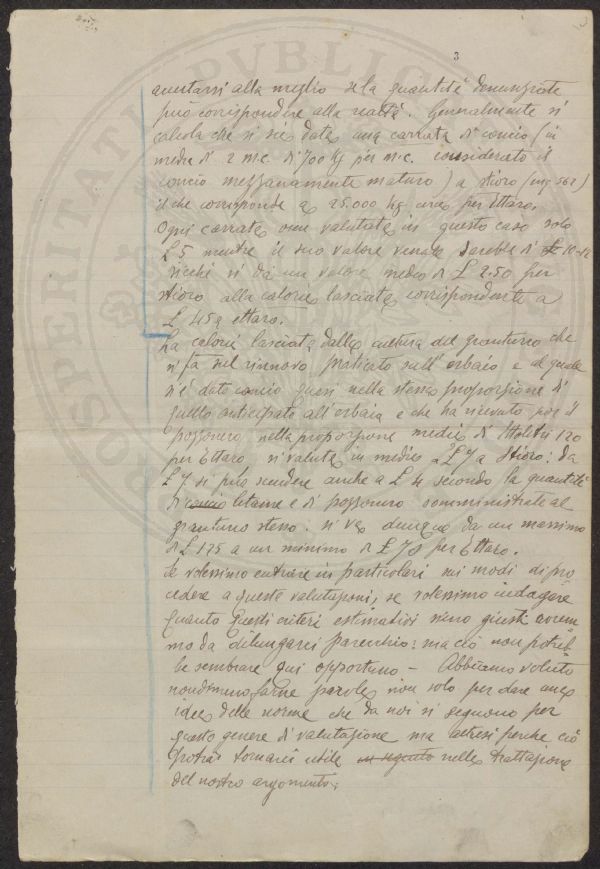 3
accertarsi alla meglio se la quantità denunziata
può corrispondere alla realtà. Generalmente si
calcola che si sia data una carrata di concio (in
media di 2 m.c. di 700 Kg per m.c. considerato il
concio mezzanamente maturo) a stioro (mq 562)
il che corrisponde a 25.000 Kg circa per Ettaro.
Ogni carrata viene valutata in questo caso solo
£ 5 mentre il suo valore venale sarebbe di £ 10-12
sicchè si dà un valore medio di £ 2.50 per
stioro alla caloria lasciata corrispondente a
£ 45 a ettaro.
La caloria lasciata dalla cultura del granturco che
si fa nel rinnovo praticato sull'orbaio e al quale
si è dato concio quasi nella stessa proporzione di
quello anticipato all'orbaia e che ha ricevuto poi il
pozzonero nella proporzione media di Ettolitri 120
per Ettaro si valuta in media a £ 7 a stioro: da
£ 7 si può scendere anche a £ 4 secondo la quantità
di concio letame e di pozzonero somministrate al
granturco stesso: si va dunque da un massimo
di £ 125 a un minimo di £ 70 per Ettaro.
Se volessimo entrare in particolari sui modi di pro
cedere a queste valutazioni, se volessimo indagare
quanto questi criteri estimativi sieno giusti avrem
mo da dilungarci parecchio: ma ciò non potreb
be sembrare qui opportuno - Abbiamo voluto
nondimeno farne parola non solo per dare una
idea delle norme che da noi si seguono per
questo genere di valutazione ma altresì perchè ciò
potrà tornarci utile in seguito nella trattazione
del nostro argomento.